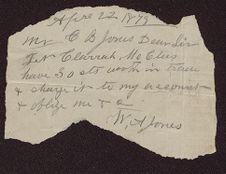 Apr 22 1893
Mr C B Jones Dear Sir
Let
have 30 cts worth in trade
& charge it to my account
& oblige me &
W. A Jones